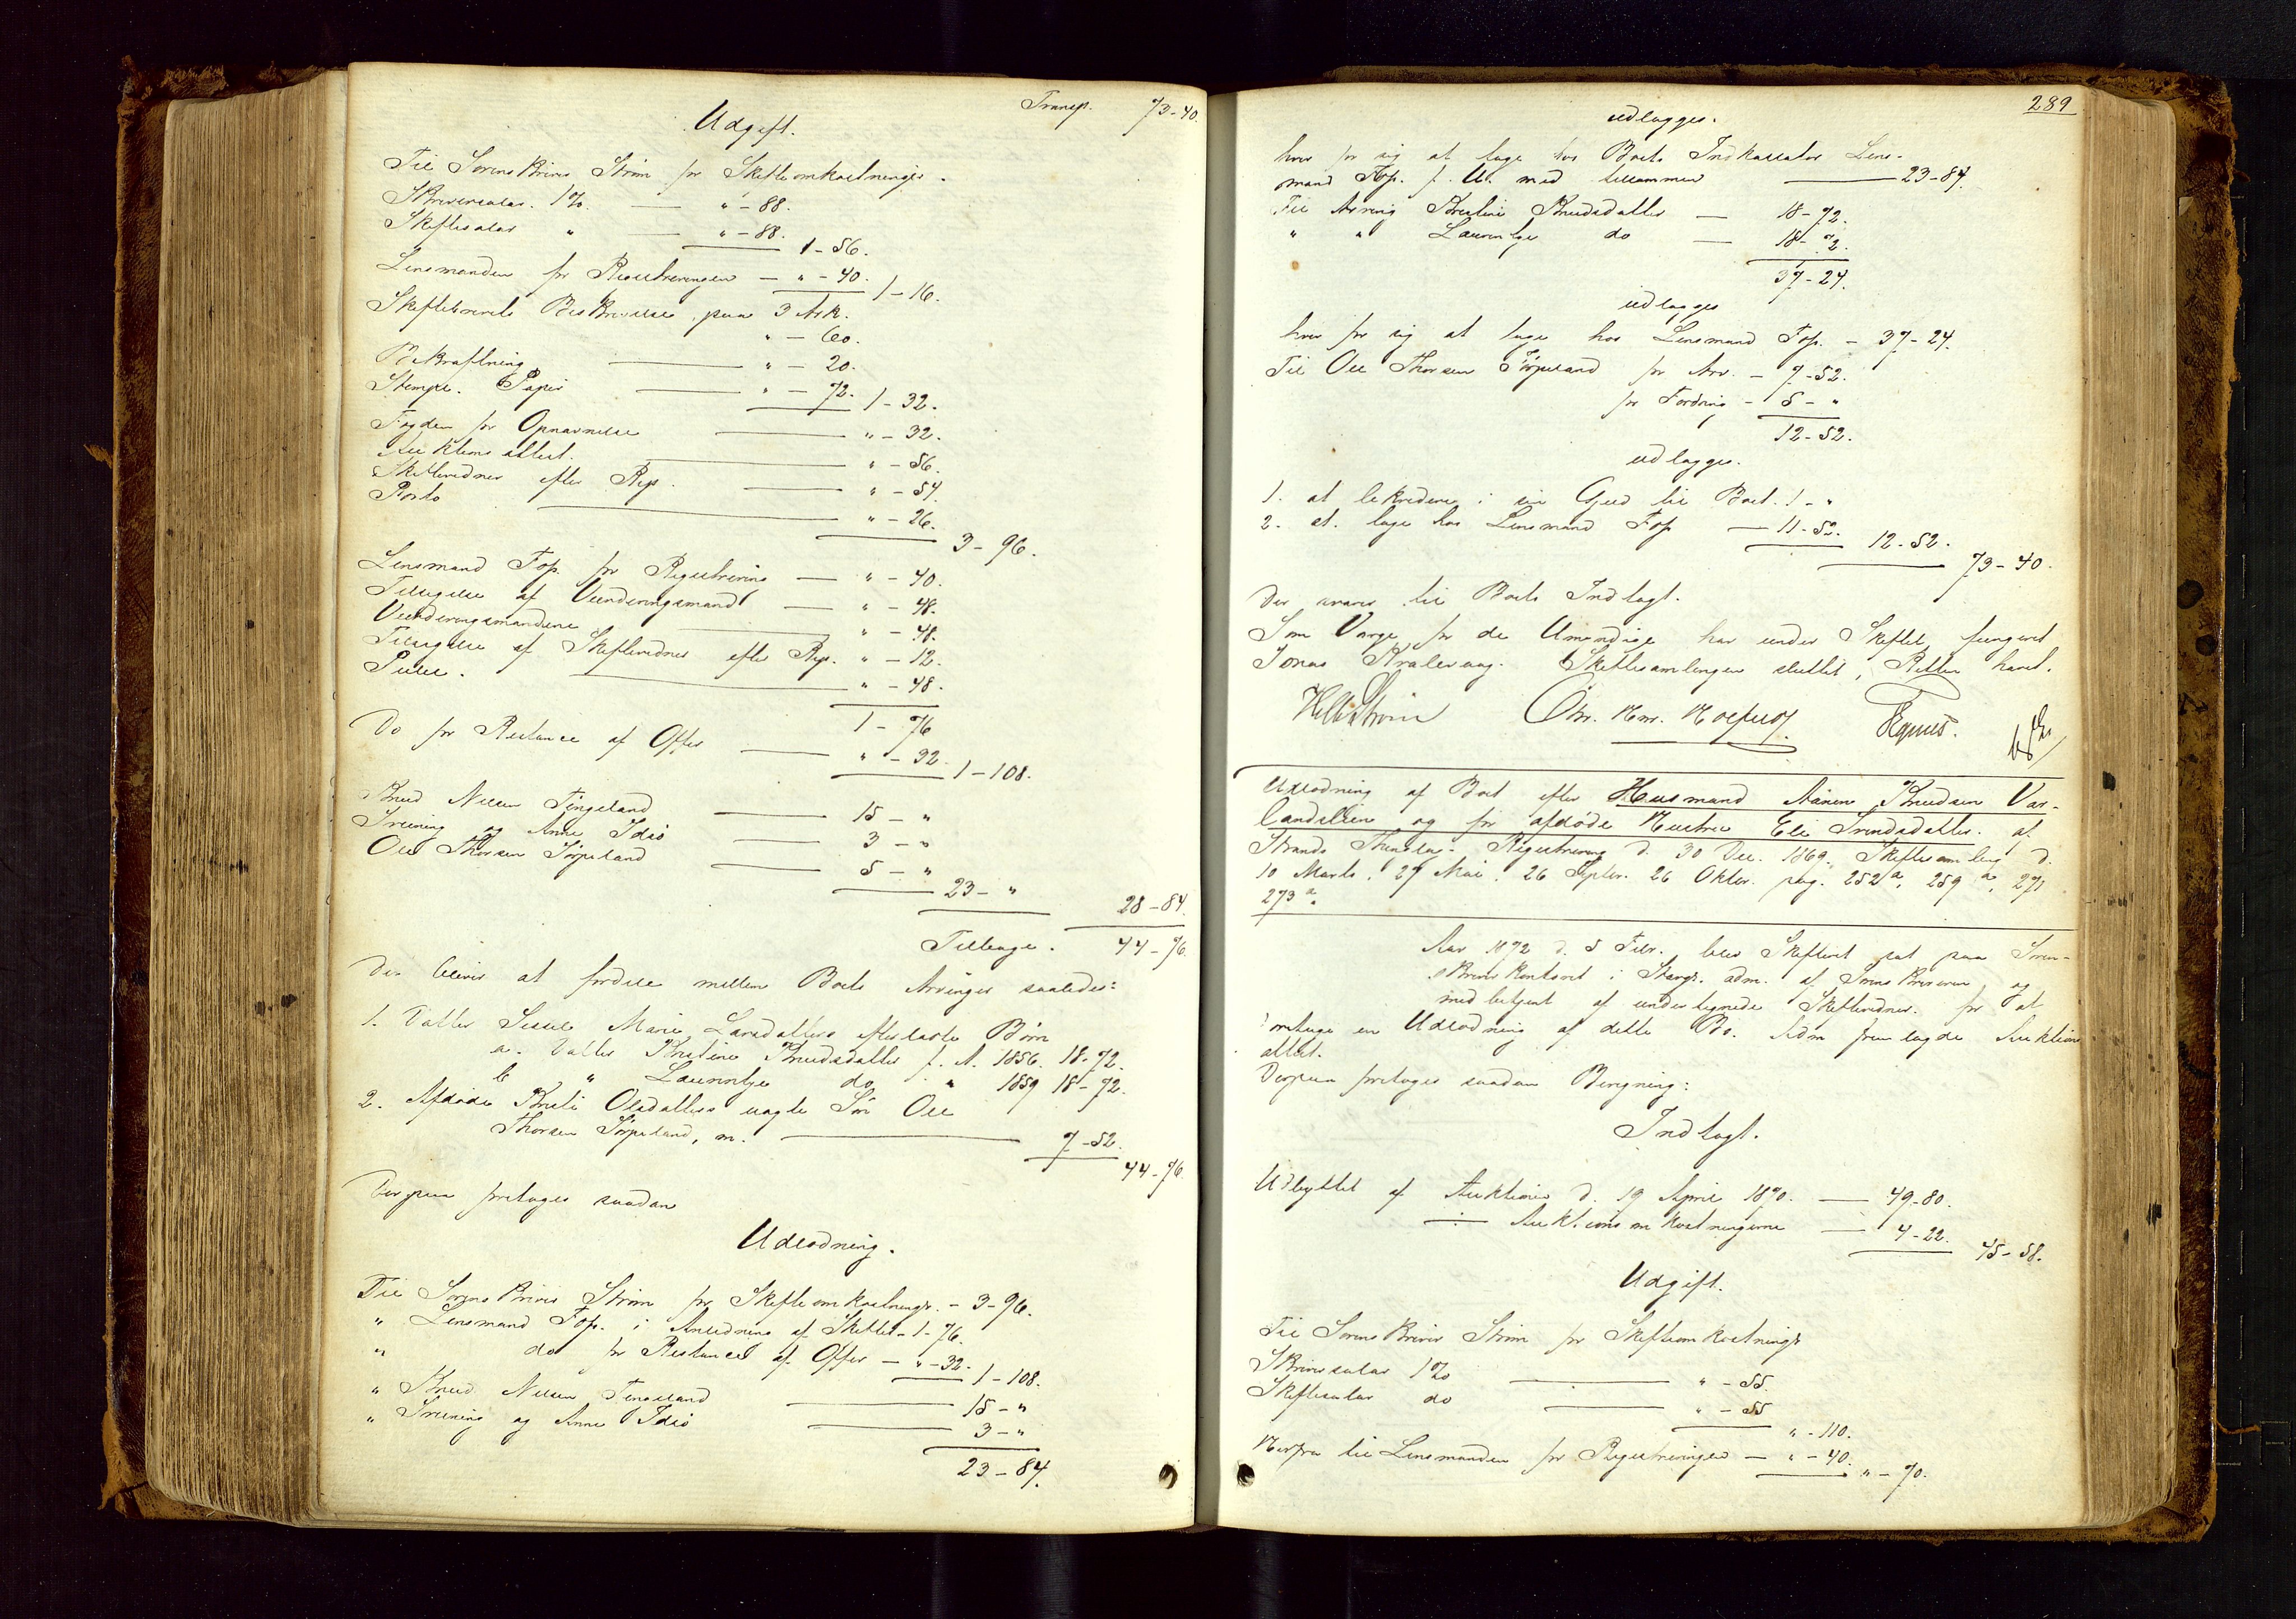 Transp. 73-40.
Udgift.
Til Sorenskriver Strøm for Skifteomkostninger.
Skriversalar. 1%. — " - 88.
Skiftesalar " — " - 88.
1-56.
Lensmanden for Registreringen — " - 40.
1-16.
Skiftebrevets Beskrivelse paa 3 Ark.
" - 60.
Bekræftning — " - 20.
Stempl. Papir — " - 72. 1-32.
Fogden for Opnævnelse — " - 32.
Auktions attest. — " - 56.
Skiftevidner efter Rep. — " - 54.
Porto — " - 26.
3-96.
Lensmand Fop. for Registrering — " - 40.
Tilsigelse af Vurderingsmænd — " - 48.
Vurderingsmændene — " - 48.
Tilsigelse af Skiftevidner efter Rep. " - 12.
— " - 48.
1-76
Do for Restance af Offer — " - 32. 1-108.
Knud Nilsen Tingeland — 15 - "
og Anne Idsø — 3 - "
Ole Thorsen Jørpeland — 5 - "
23 - "
28-84.
Tilbage. 44-76.
Der bliver at fordele mellem Boets Arvinger saaledes:
1. Datter Marie Larsdatters efterladte Børn
a. Datter Kristine Knudsdatter f. A. 1856. 18-72.
b " do " 1859 18-72.
2. Afdøde Olsdatters uægte Søn Ole
Thorsen Jørpeland, m. — 7-52.
44-76.
Derpaa foretoges saadan
Udlodning.
Til Sorenskriver Strøm for Skifteomkostningr. - 3-96.
" Lensmand Fop. i Anledning af Skiftet - 1-76.
" do for Restance af Offer — " - 32. 1-108.
" Knud Nilsen Tingeland — 15 - "
" og Anne Idsø — 3 - "
23-84.
289
udlægges.
hver for sig at tage hos Boets Inkassator Lens-
mand Fop. f. U. med tilsammen — 23-84.
Til Arving Kristine Knudsdatter — 18-72.
" " do — 18-72.
37-24.
udlægges
hver for sig at tage hos Lensmand Fop. - 37-24.
Til Ole Thorsen Jørpeland for Arv. - 7-52.
for Fordring - 5 - "
12-52.
udlægges.
1. at likvidere i sin Gjæld til Boet. 1 - "
2. at tage hos Lensmand Fop — 11-52.
12-52.
73-40.
der svarer til Boets Indtægt.
Som Værge for de Umyndige har under Skiftet fungeret
Jonas Skiftesamlingen sluttet, Retten hævet.
Strøm
Udlodning af Boet efter Husmand Knudsen Var-
landslien og før afdøde Hustru Eli Svendsdatter. af
Strands Thinglag. Registrering d. 30 Dec. 1869. Skiftesamling d.
10 Marts, 27 Mai, 26 Septbr. 26 Oktbr. pag. 252a, 259a, 271
273a.
Aar 1872 d. 5 Febr. blev Skifteret sat paa Soren-
skriverkontoret i Stavgr. adm. af Sorenskriveren og
med betjent af undertegnede Skiftevidner for at
foretage en Udlodning af dette Bo. Adm fremlagde Auktions
attest.
Derpaa foretoges saadan Beregning:
Indtægt.
Udbyttet af Auktionen d. 19 April 1870. — 49-80.
÷ Auktionsomkostningerne — 4-22.
45-58.
Udgift.
Til Sorenskriver Strøm for Skifteomkostningr
Skriversalar 1% — " - 55.
Skiftesalar do — " - 55
" - 110.
Herfra til Lensmanden for Registreringen — " - 40.
" - 70.